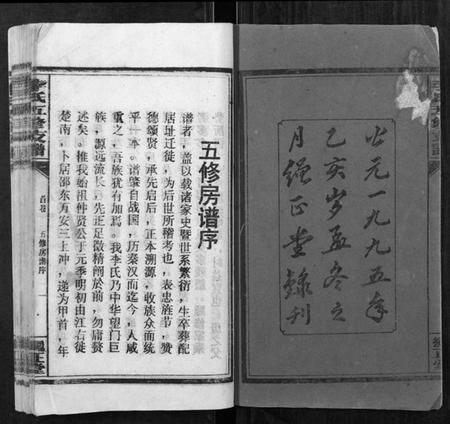 公元一九九五年
乙亥岁孟冬之
月绳正堂录刊
五修房谱序
谱者，盖以载诸家史暨世系繁衍，生卒葬配
居址迁徙，为后世所稽考也，表忠旌节，赞
德颂贤，承先启后，正本溯源，收族众而统
乎一本。谱肇自战国，历秦汉而迄今，人咸
重之，吾族犹有加焉。我李氏乃中华望门巨
族，源远流长，先正足徵精阐於前，勿庸赘
述矣。惟我始祖仲贤公于元季明初由江右徙
楚南，卜居邵东万安三上冲，递为甲首，年
李氏五修支谱
首卷
五修房谱序
一
绳正堂